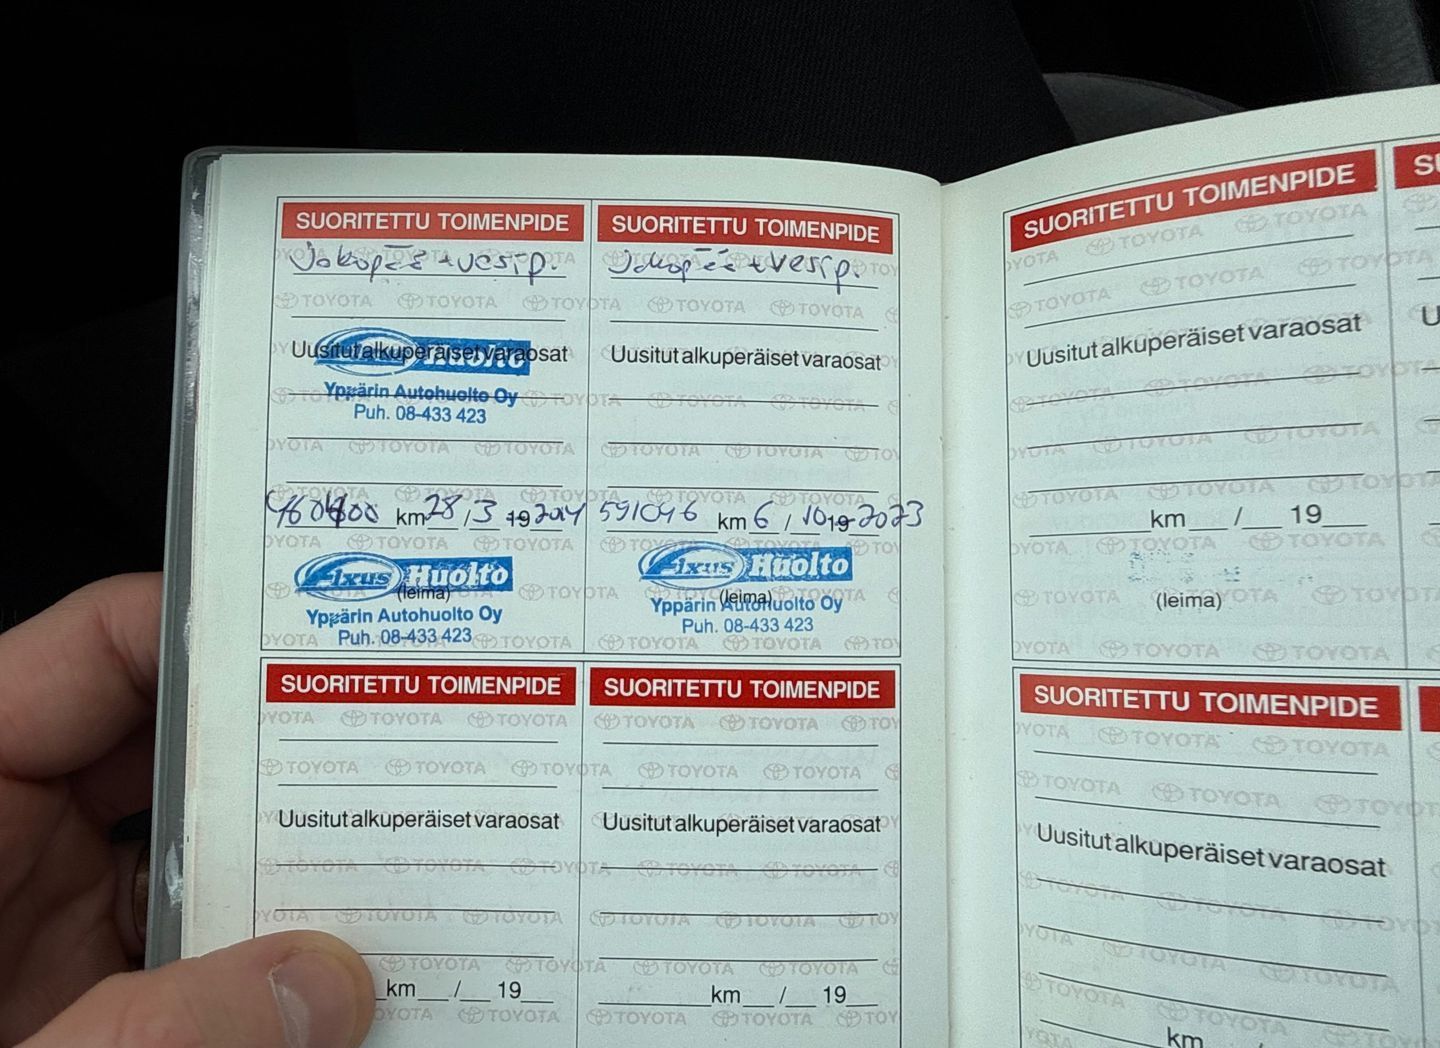 SUORITETTU TOIMENPIDE
Jakopää + vesip.
Uusitut alkuperäiset varaosat
Huolto
Yppärin Autohuolto Oy
Puh. 08-433 423
km 28 / 3 19 2014
Fixus Huolto
(leima)
Yppärin Autohuolto Oy
Puh. 08-433 423
SUORITETTU TOIMENPIDE
Jakopää + vesip.
Uusitut alkuperäiset varaosat
591046 km 6 / 10 19 2023
Fixus Huolto
(leima)
Yppärin Autohuolto Oy
Puh. 08-433 423
SUORITETTU TOIMENPIDE
Uusitut alkuperäiset varaosat
km / 19
SUORITETTU TOIMENPIDE
Uusitut alkuperäiset varaosat
km / 19
SUORITETTU TOIMENPIDE
Uusitut alkuperäiset varaosat
km / 19
(leima)
SUORITETTU TOIMENPIDE
Uusitut alkuperäiset varaosat
km
TOYOTA